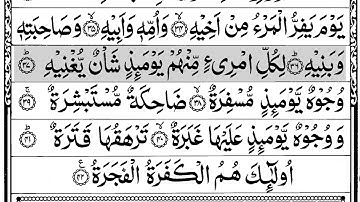 يَوْمَ يَفِرُّ الْمَرْءُ مِنْ اَخِيْهِ ۙ﴿۳۴﴾ وَاُمِّهٖ وَاَبِيْهِ ۙ﴿۳۵﴾ وَصَاحِبَتِهٖ
وَبَنِيْهِ ؕ﴿۳۶﴾ لِكُلِّ امْرِئٍ مِّنْهُمْ يَوْمَئِذٍ شَاْنٌ يُّغْنِيْهِ ؕ﴿۳۷﴾
وُجُوْهٌ يَّوْمَئِذٍ مُّسْفِرَةٌ ۙ﴿۳۸﴾ ضَاحِكَةٌ مُّسْتَبْشِرَةٌ ۚ﴿۳۹﴾
وَ وُجُوْهٌ يَّوْمَئِذٍ عَلَيْهَا غَبَرَةٌ ۙ﴿۴۰﴾ تَرْهَقُهَا قَتَرَةٌ ؕ﴿۴۱﴾
اُولٰٓئِكَ هُمُ الْكَفَرَةُ الْفَجَرَةُ ﴿۴۲﴾